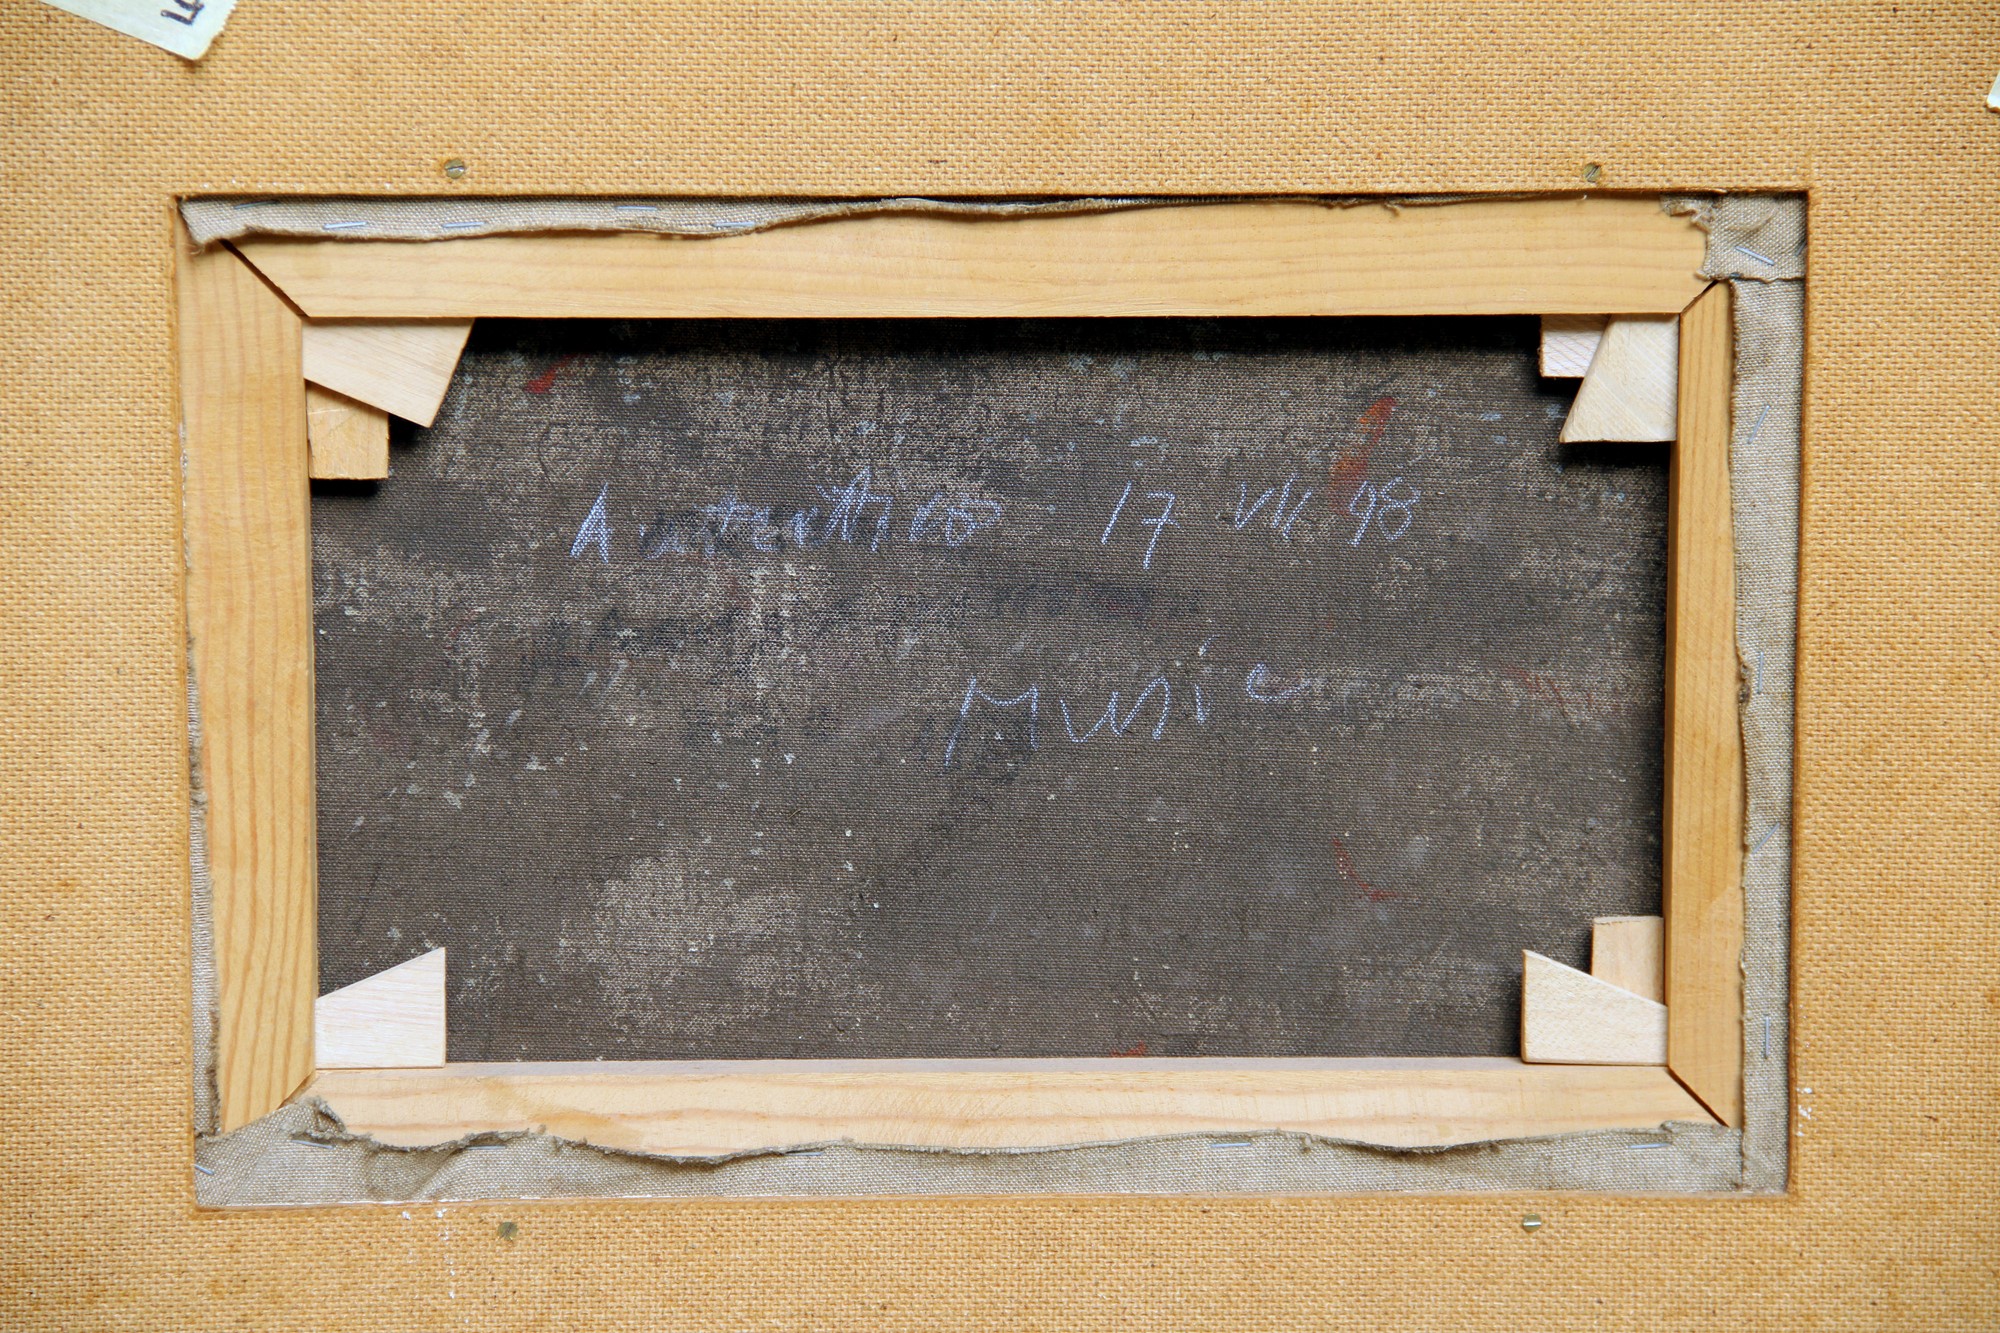 Autentico 17 VII 98
Music